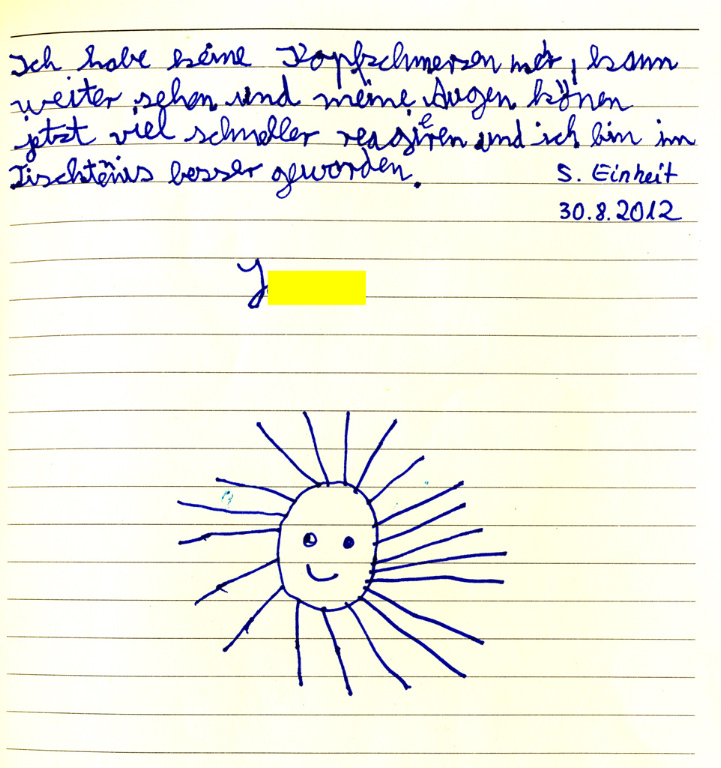 Ich habe keine Kopfschmersen mer, kann
weiter sehen und meine Augen könen
jetzt viel schneller reagieren und ich bin im
Tischtenis besser geworden.
S. Einheit
30.8.2012